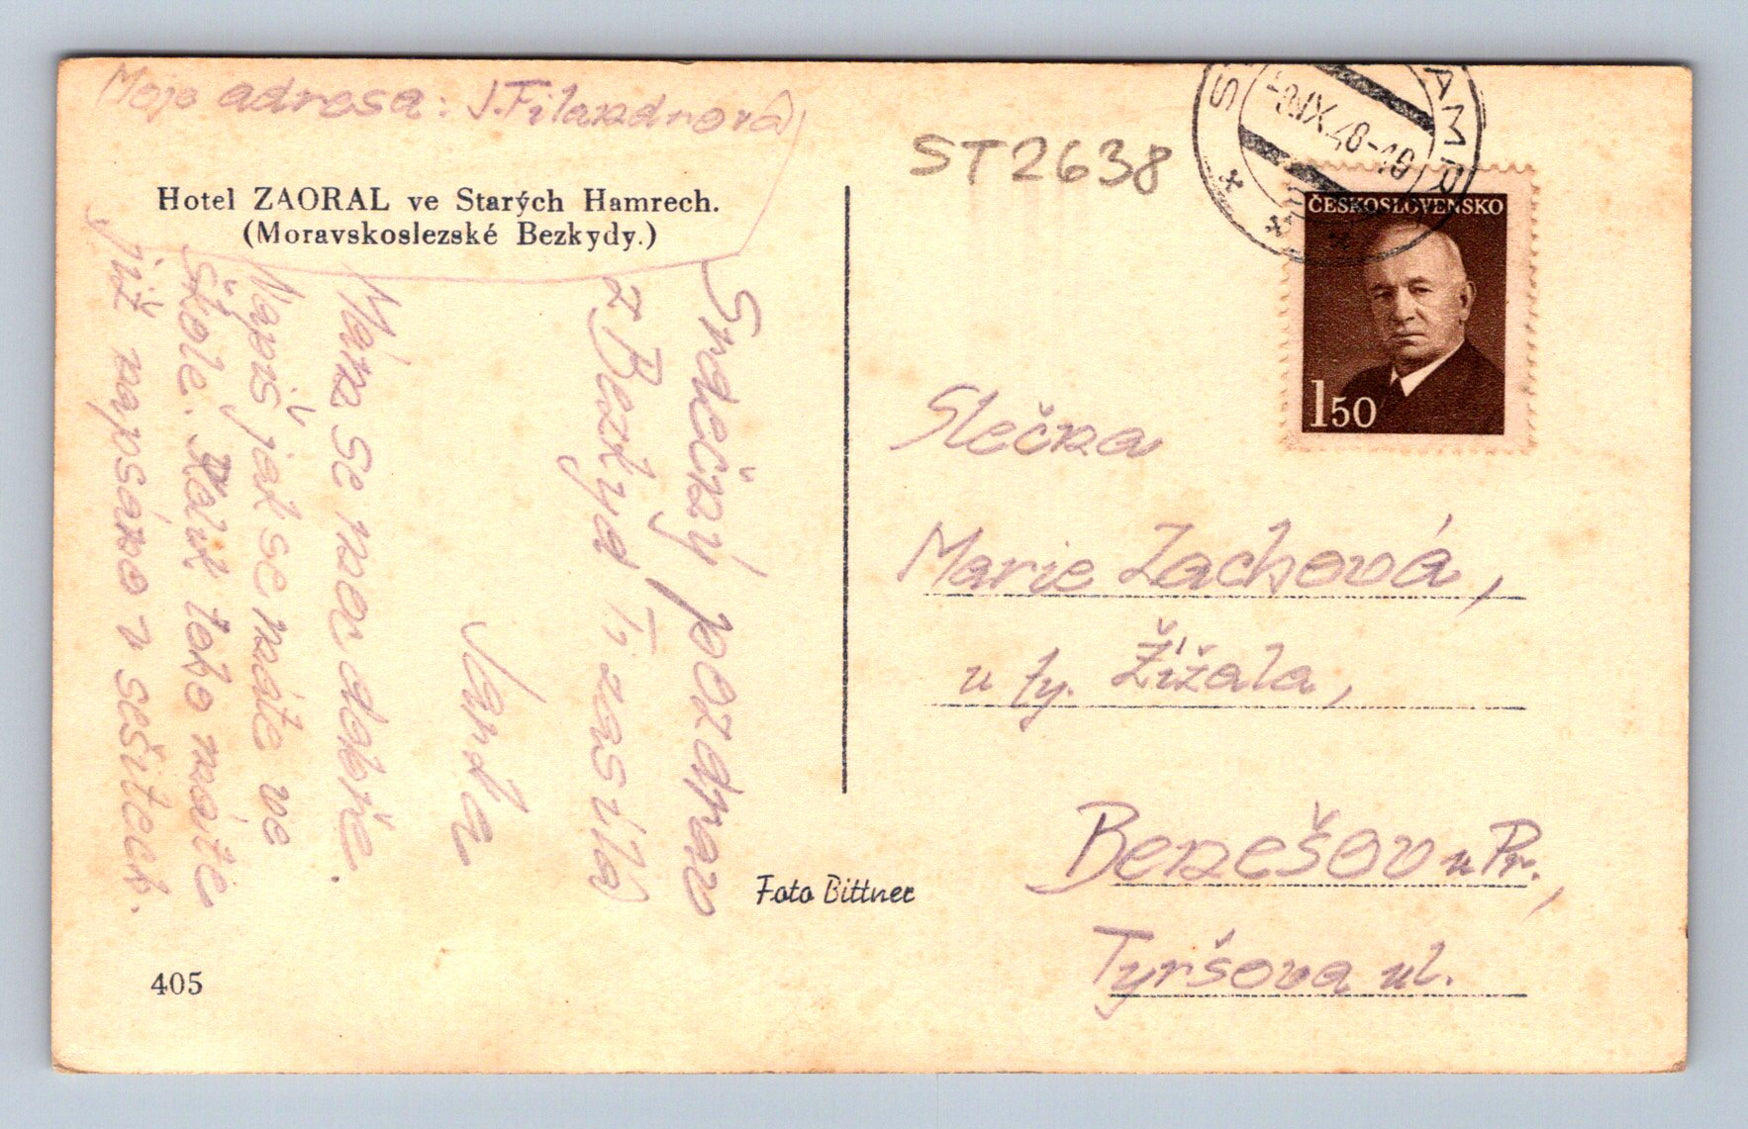 Moje adresa: J. Filandrová
Hotel ZAORAL ve Starých Hamrech.
(Moravskoslezské Bezkydy.)
Srdečný pozdrav
z Bezkyd Ti zasílá
Jarka
Mám se moc dobře.
Napiš jak se máte ve
škole. Kolik toho máte
již napsáno v sešitech.
405
Foto Bittner
ST2638
ČESKOSLOVENSKO
150
Slečna
Marie Zachová,
u ty. Žížala,
Benešov u Pr.,
Tyršova ul.